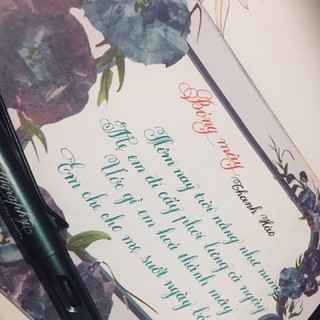 Bóng mây
Thanh Hào
Hôm nay trời nắng như nung
Mẹ em đi cấy phơi lưng cả ngày
Ước gì em hoá thành mây
Em che cho mẹ suốt ngày